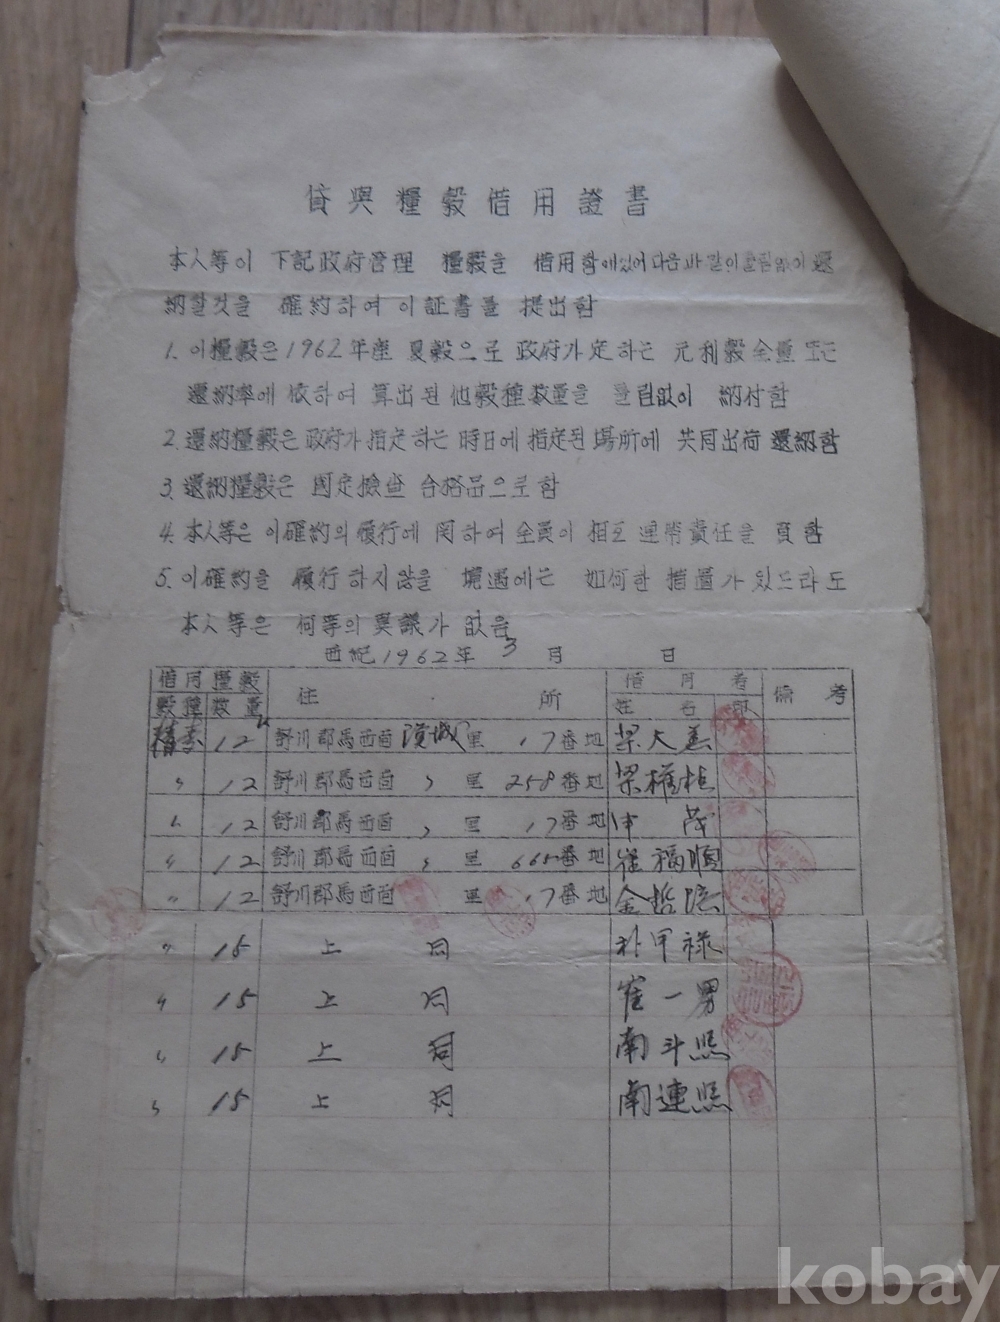 貸與糧穀借用證書
本人等이 下記政府管理 糧穀을 借用함에있어 다음과 같이 틀림없이 還
納할것을 確約하여 이証書를 提出함
1. 이糧穀은 1962年産 夏穀으로 政府가 定하는 元利穀全量 또는
還納率에 依하여 算出된 他穀種数量을 틀림없이 納付함
2. 還納糧穀은 政府가 指定하는 時日에 指定된 場所에 共同出荷 還納함
3. 還納糧穀은 國定檢査 合格品으로 함
4. 本人等은 이確約의 履行에 関하여 全員이 相互 連帶責任을 負함
5. 이確約을 履行하지않을 境遇에는 如何한 措置가 있드라도
本人等은 何等의 異議가 없음
西紀 1962年 3月 日
借用糧穀 住 所 借用者 備考
穀種 数量 姓名 印
12 舒川郡馬西面 漢城里 17番地 梁大
〃 12 舒川郡馬西面 〃 里 258番地 梁權植
〃 12 舒川郡馬西面 〃 里 17番地 申 茂
〃 12 舒川郡馬西面 〃 里 番地 崔福順
〃 12 舒川郡馬西面 里 17番地 金哲
〃 15 上 同 朴甲祿
〃 15 上 同 崔一男
〃 15 上 同 南斗熙
〃 15 上 同 南連熙
kobay